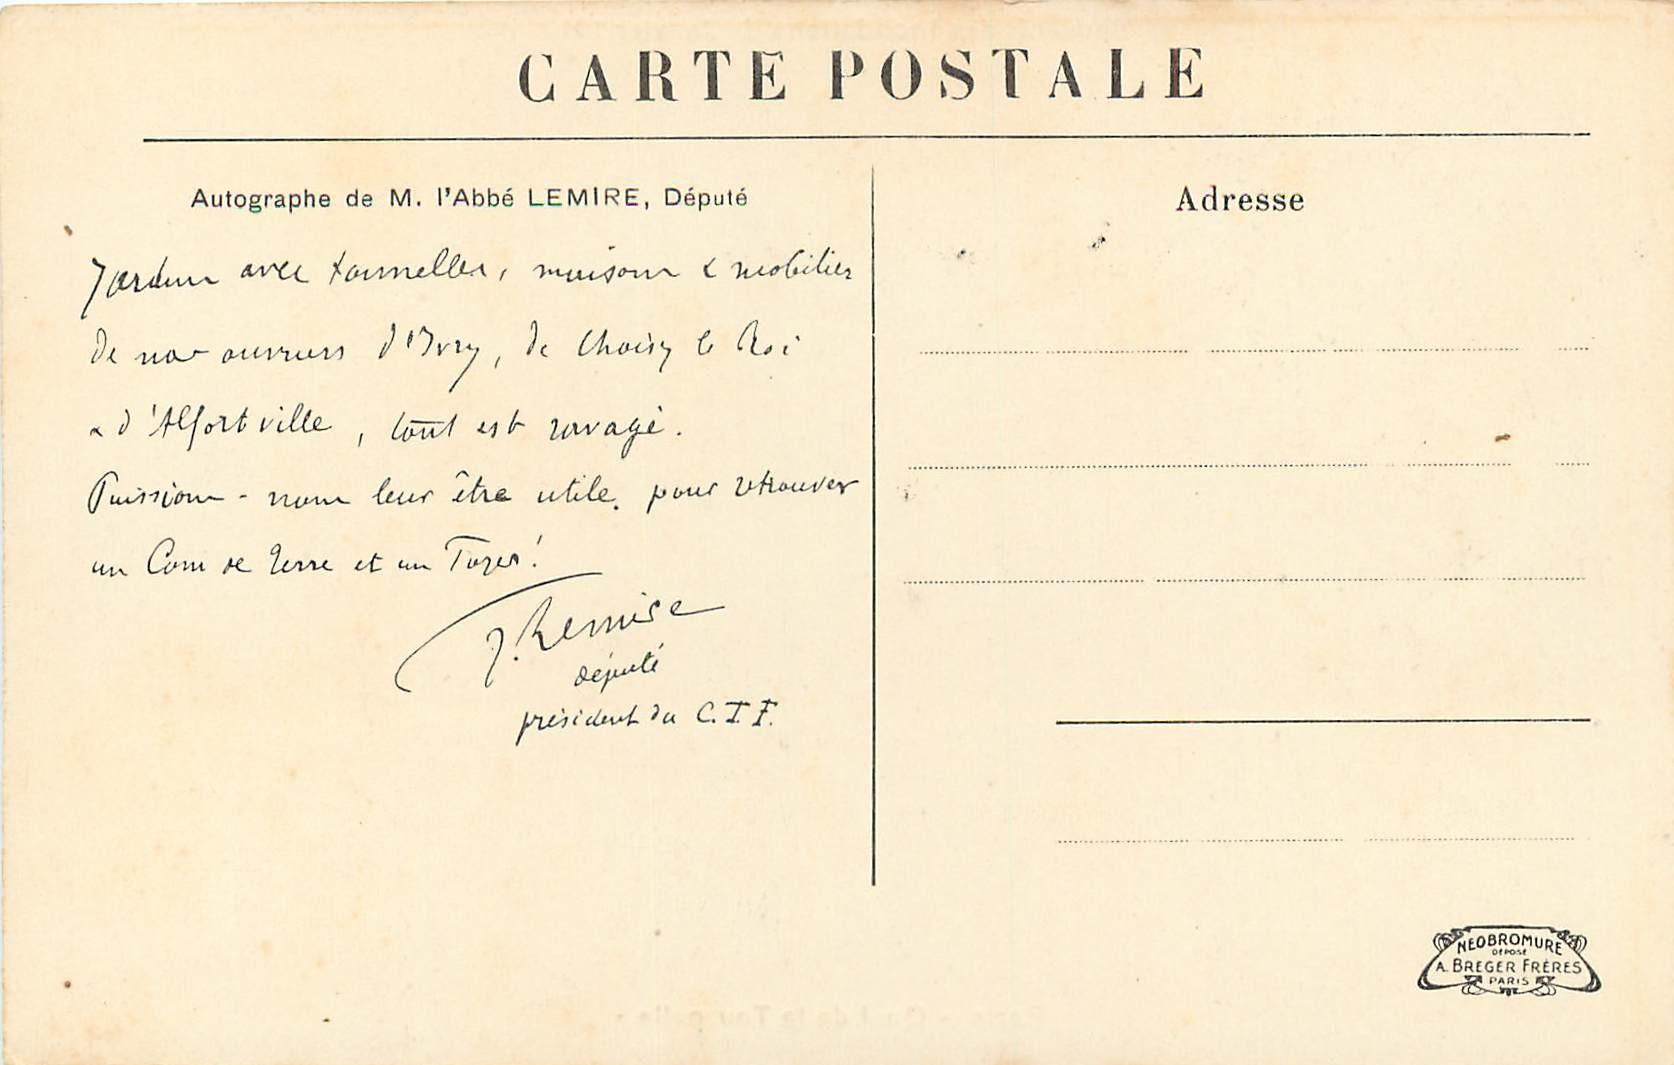 CARTE POSTALE
Autographe de M. l'Abbé LEMIRE, Député
Jardins avec tonnelles, maisons & mobilier
de nos ouvriers d'Ivry, de Choisy le Roi
& d'Alfortville, tout est ravagé.
Puissions-nous leur être utile, pour retrouver
un Coin de Terre et un Foyer!
J. Lemire
député
président du C.T.F.
Adresse
NEOBROMURE
DÉPOSÉ
A. BREGER FRÈRES
PARIS